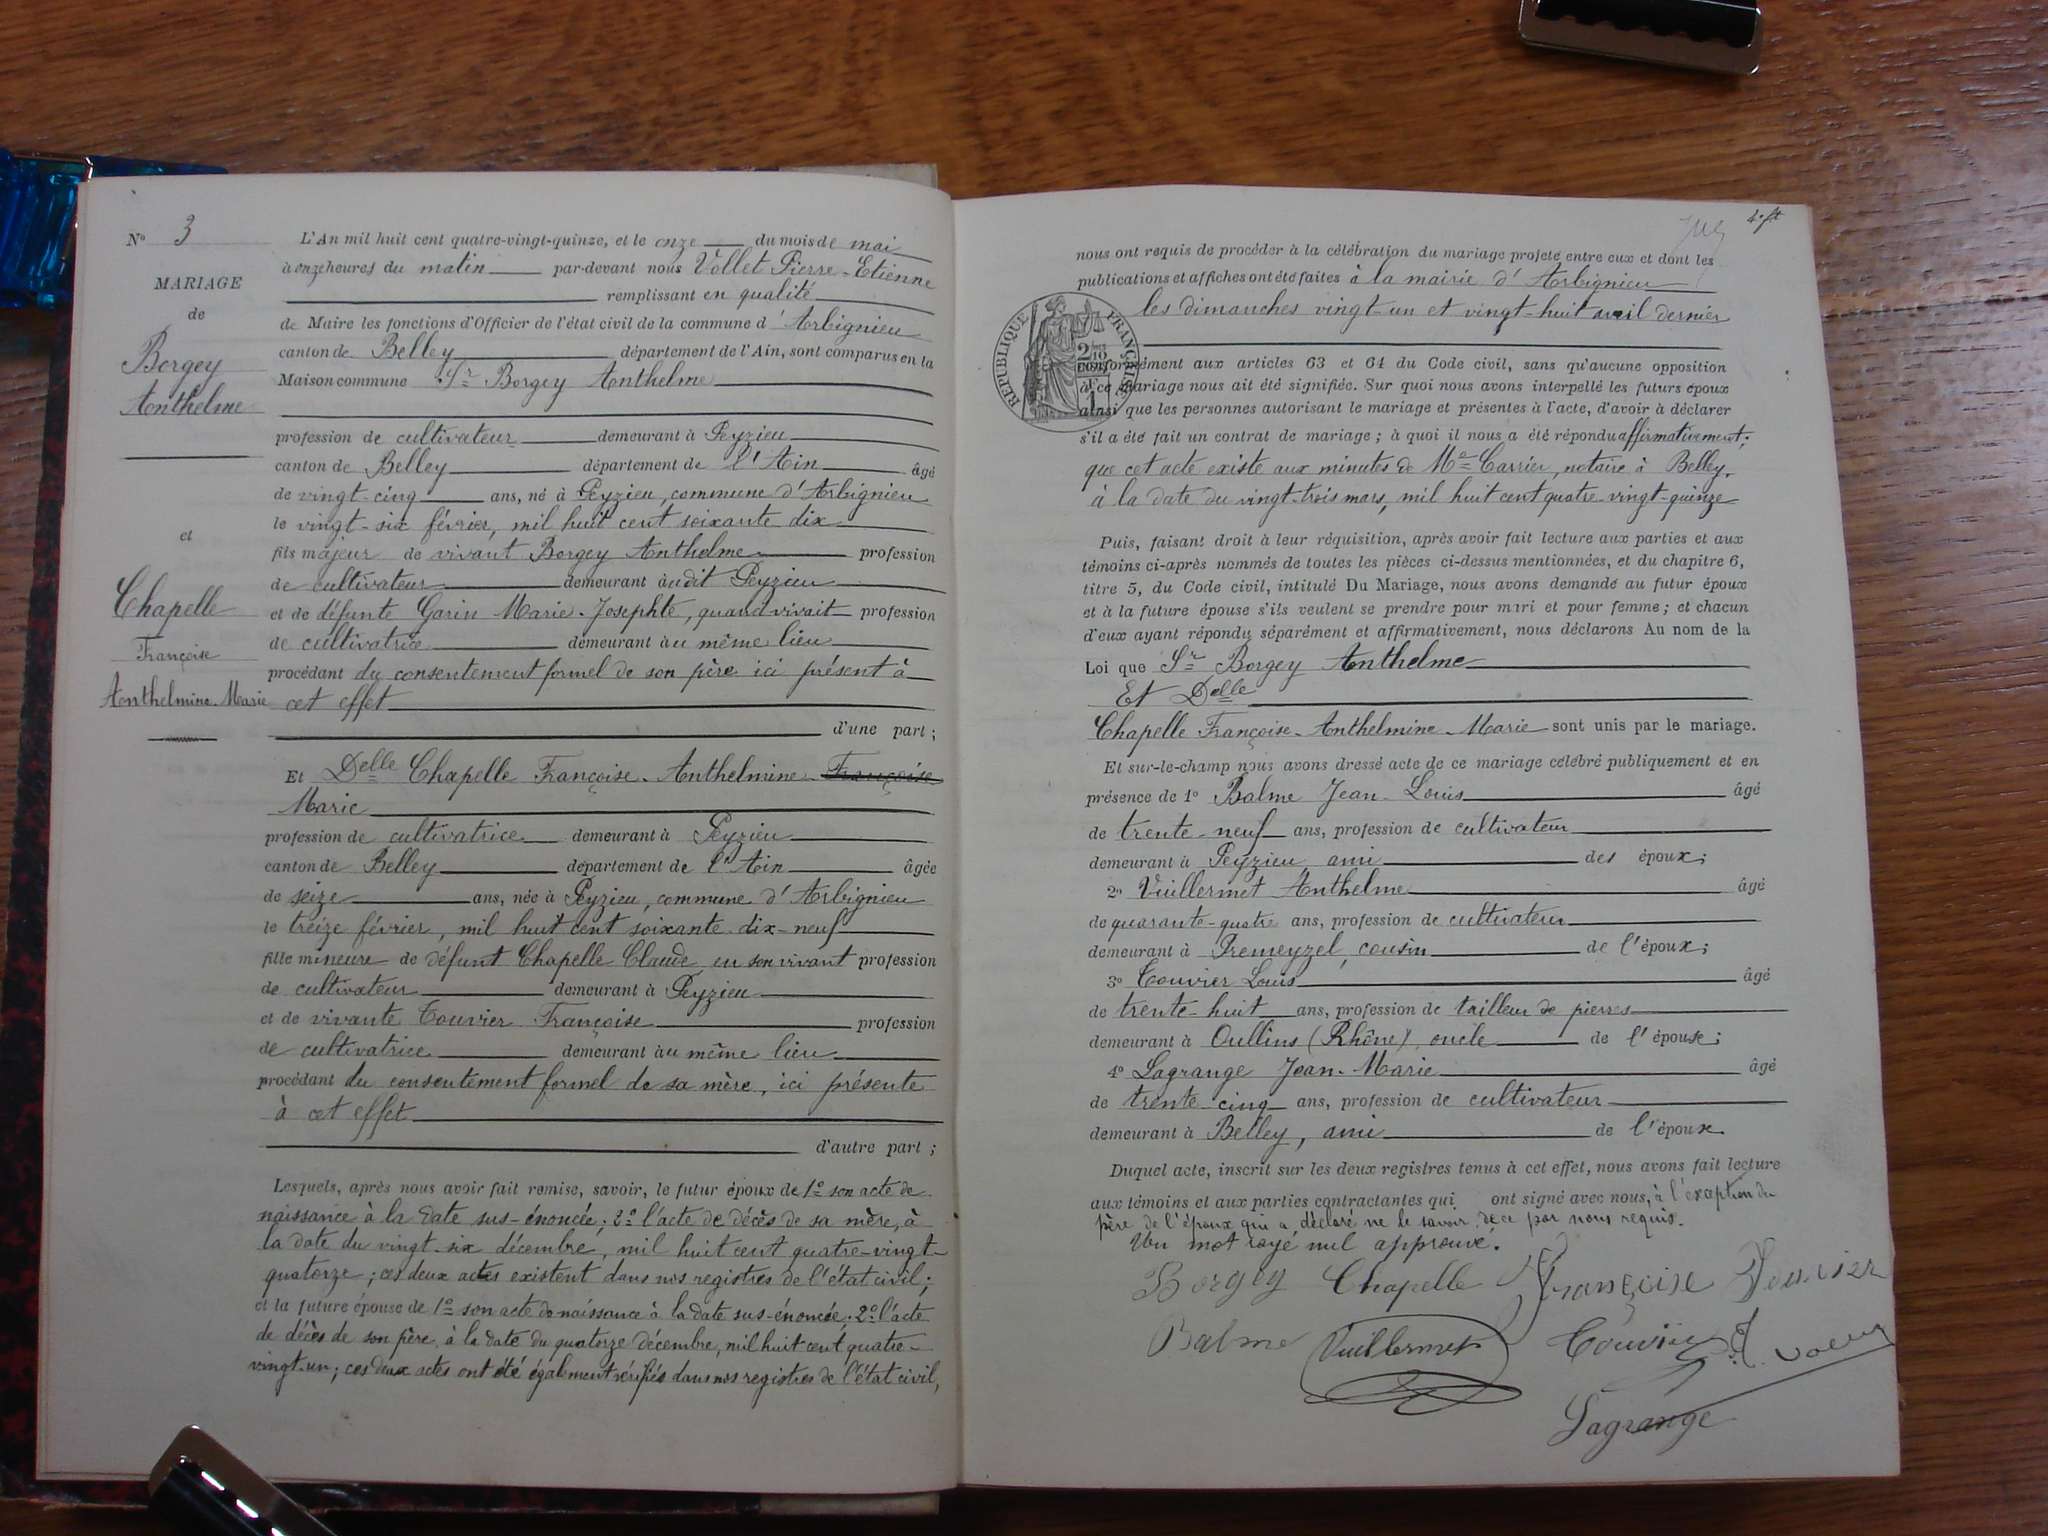 N° 3
MARIAGE
de
Borgey
Anthelme
et
Chapelle
Françoise
Anthelmine-Marie
L'An mil huit cent quatre-vingt-quinze, et le onze du mois de mai
à onze heures du matin par-devant nous Vollet Pierre-Etienne
remplissant en qualité
de Maire les fonctions d'Officier de l'état civil de la commune d'Arbignieu
canton de Belley département de l'Ain, sont comparus en la
Maison commune : Sr Borgey Anthelme
profession de cultivateur demeurant à Peyzieu
canton de Belley département de l'Ain âgé
de vingt-cinq ans, né à Peyzieu, commune d'Arbignieu
le vingt-six février, mil huit cent soixante dix
fils majeur de vivant Borgey Anthelme profession
de cultivateur demeurant audit Peyzieu
et de défunte Garin Marie-Josephte, quand vivait profession
de cultivatrice demeurant au même lieu
procédant du consentement formel de son père ici présent à
cet effet
d'une part ;
Et Delle Chapelle Françoise-Anthelmine-Françoise
Marie
profession de cultivatrice demeurant à Peyzieu
canton de Belley département de l'Ain âgée
de seize ans, née à Peyzieu, commune d'Arbignieu
le treize février, mil huit cent soixante-dix-neuf
fille mineure de défunt Chapelle Claude, en son vivant profession
de cultivateur demeurant à Peyzieu
et de vivante Touvier Françoise profession
de cultivatrice demeurant au même lieu
procédant du consentement formel de sa mère, ici présente
à cet effet
d'autre part ;
Lesquels, après nous avoir fait remise, savoir, le futur époux de 1° son acte de
naissance à la date sus-énoncée ; 2° l'acte de décès de sa mère, à
la date du vingt-six décembre, mil huit cent quatre-vingt-
quatorze ; ces deux actes existent dans nos registres de l'état civil ;
et la future épouse de 1° son acte de naissance à la date sus-énoncée ; 2° l'acte
de décès de son père à la date du quatorze décembre, mil huit cent quatre-
vingt-un ; ces deux actes ont été également vérifiés dans nos registres de l'état civil,
nous ont requis de procéder à la célébration du mariage projeté entre eux et dont les
publications et affiches ont été faites à la mairie d'Arbignieu
les dimanches vingt-un et vingt-huit avril dernier
RÉPUBLIQUE FRANÇAISE
conformément aux articles 63 et 64 du Code civil, sans qu'aucune opposition
à ce mariage nous ait été signifiée. Sur quoi nous avons interpellé les futurs époux
ainsi que les personnes autorisant le mariage et présentes à l'acte, d'avoir à déclarer
s'il a été fait un contrat de mariage ; à quoi il nous a été répondu affirmativement ;
que cet acte existe aux minutes de Me Carrier, notaire à Belley,
à la date du vingt-trois mars, mil huit cent quatre-vingt-quinze
Puis, faisant droit à leur réquisition, après avoir fait lecture aux parties et aux
témoins ci-après nommés de toutes les pièces ci-dessus mentionnées, et du chapitre 6,
titre 5, du Code civil, intitulé Du Mariage, nous avons demandé au futur époux
et à la future épouse s'ils veulent se prendre pour mari et pour femme ; et chacun
d'eux ayant répondu séparément et affirmativement, nous déclarons Au nom de la
Loi que Sr Borgey Anthelme
Et Delle
Chapelle Françoise-Anthelmine-Marie sont unis par le mariage.
Et sur-le-champ nous avons dressé acte de ce mariage célébré publiquement et en
présence de 1° Balme Jean-Louis âgé
de trente-neuf ans, profession de cultivateur
demeurant à Peyzieu, ami des époux ;
2° Vuillermet Anthelme âgé
de quarante-quatre ans, profession de cultivateur
demeurant à Premeyzel, cousin de l'époux ;
3° Touvier Louis âgé
de trente-huit ans, profession de tailleur de pierres
demeurant à Oullins (Rhône), oncle de l'épouse ;
4° Lagrange Jean-Marie âgé
de trente-cinq ans, profession de cultivateur
demeurant à Belley, ami de l'époux
Duquel acte, inscrit sur les deux registres tenus à cet effet, nous avons fait lecture
aux témoins et aux parties contractantes qui ont signé avec nous, à l'exeption du
père de l'époux qui a déclaré ne le savoir, de ce par nous requis.
Un mot rayé nul approuvé.
Borgey Chapelle Françoise Touvier
Balme Vuillermet Touvier Vollet
Lagrange